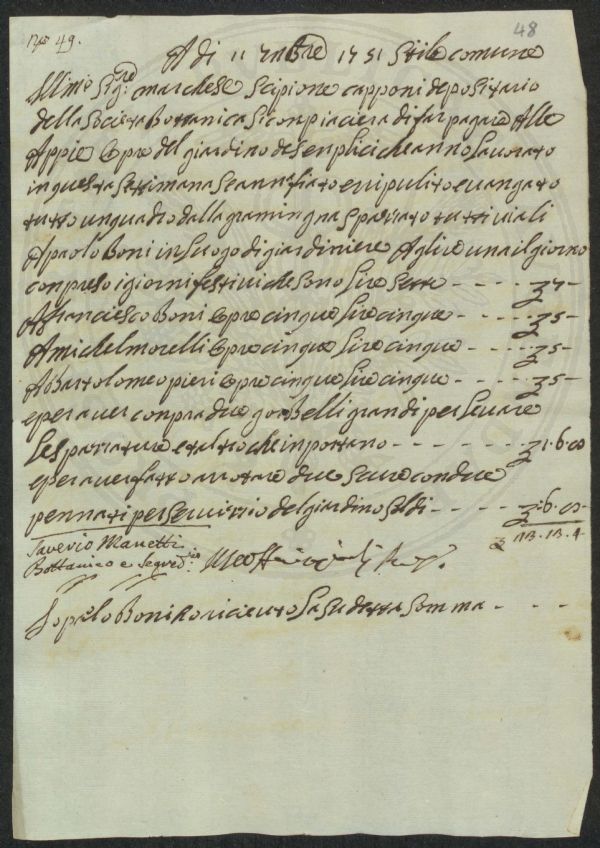 N.º 49.
48
A di 11 7mbre 1751 Stile comune
Illmo Sigre: marchese Scipione capponi depositario
della Società Bottanica Si conpiacierà di far pagare Alle
Appie Opre del giardino de senplici che anno Lavorato
in questa Settimana Se anafiato e ripulito e vangato
tutto un quadro dalla gramingna Spazzato tutti i viali
A paolo Boni in Luogo di giardiniere A Lire una il giorno
conpreso i giorni festivi che Sono Lire Sette - - - - - 7 -
A francesco Boni Opre cinque Lire cinque - - - - - 5 -
A michel morelli Opre cinque Lire cinque - - - - - 5 -
A Bartolomeo pieri Opre cinque Lire cinque - - - - 5 -
e per aver conpra due gorbelli grandi per Levare
Le Spazzature e taltro che inportano - - - - - - - 1. 6. 8
e per aver fatto arrotare due Scure con due
pennati per Servizzio del giardino Soldi - - - - -. 6. 8
Saverio Manetti
Bottanico e Segrerio:
Io paolo Boni ho riceuto La Sudetta Somma - - - -